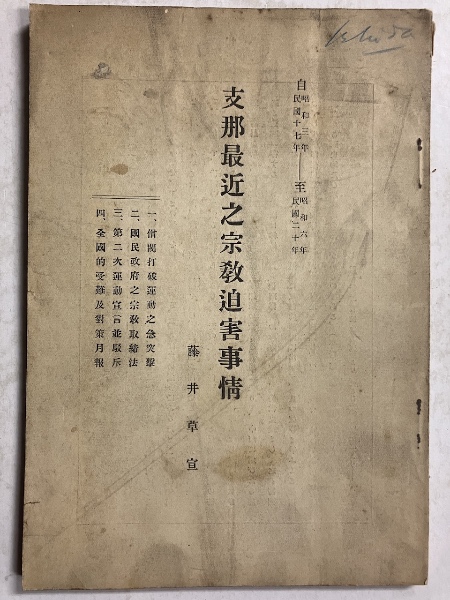 自 昭和三年 民國十七年 ── 至 昭和六年 民國二十年
支那最近之宗教迫害事情
藤井草宣
一、僧閥打破運動之急突擊
二、國民政府之宗教取締法
三、第二次運動宣言並駁斥
四、全國的受難及對策月報